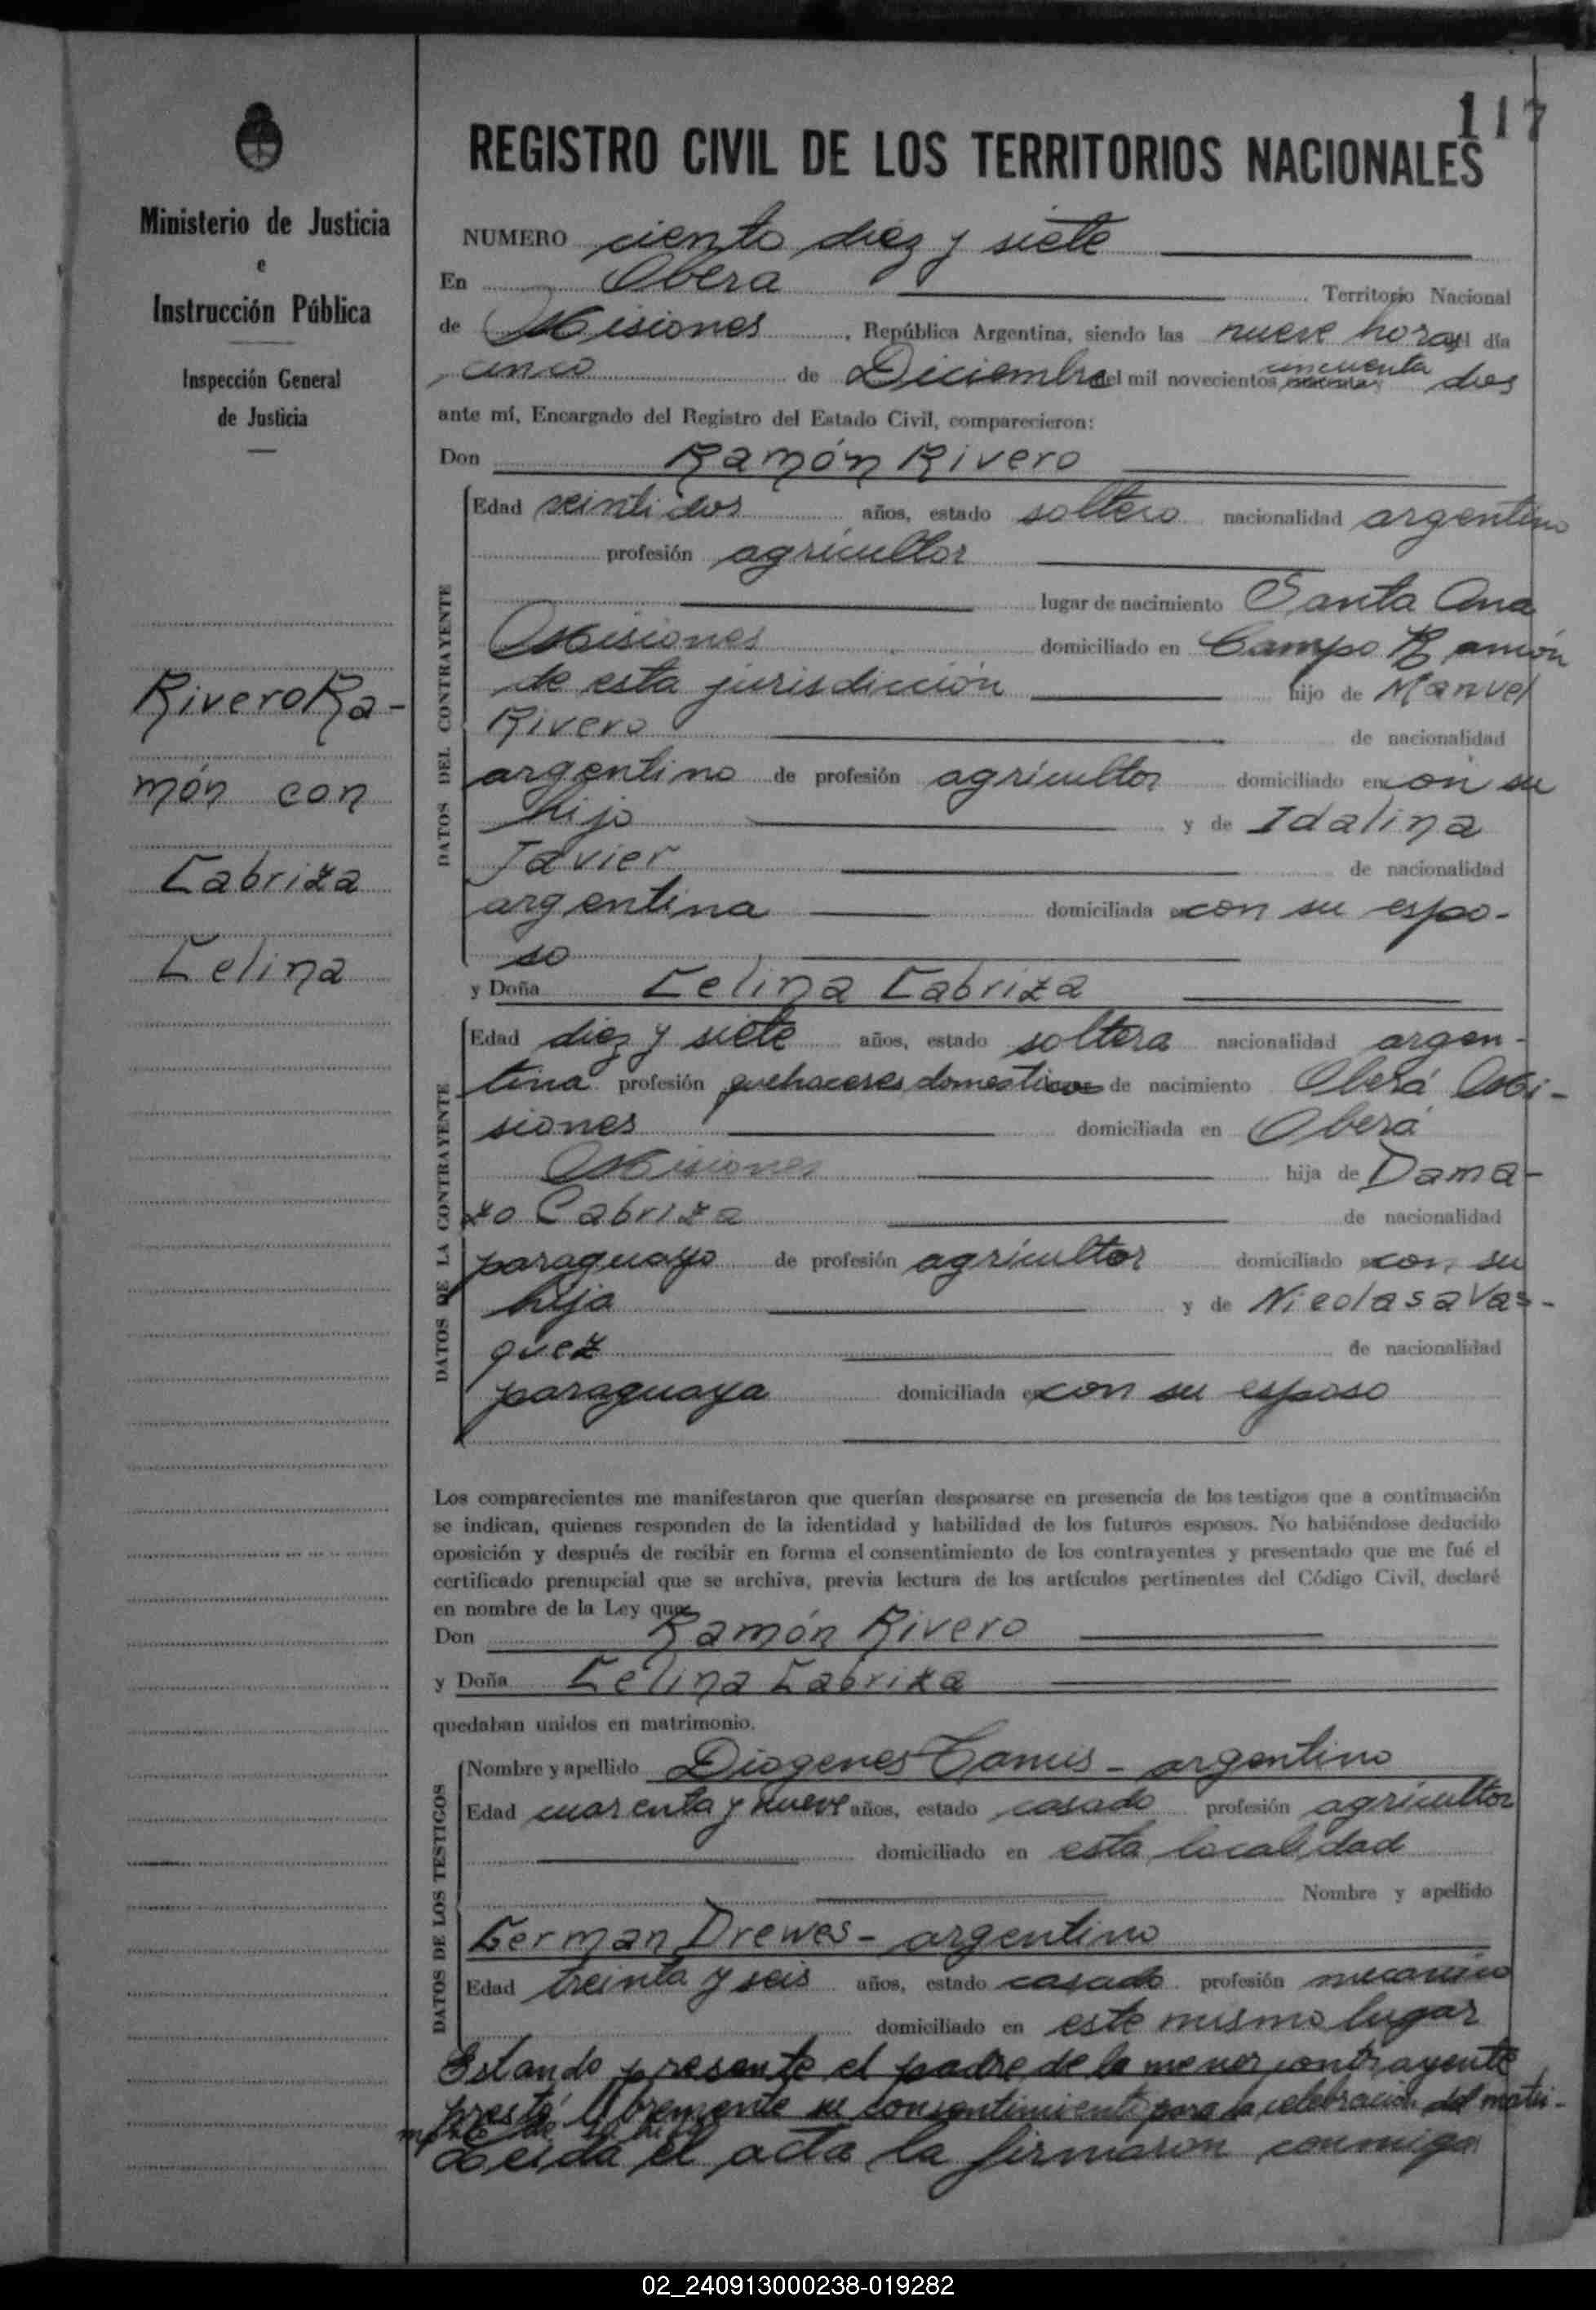 117
REGISTRO CIVIL DE LOS TERRITORIOS NACIONALES
Ministerio de Justicia
e
Instrucción Pública
Inspección General
de Justicia
Rivero Ra-
món con
Cabriza
Celina
NUMERO ciento diez y siete
En Obera Territorio Nacional
de Misiones, República Argentina, siendo las nueve horas del día
cinco de Diciembre del mil novecientos cincuenta dos
ante mí, Encargado del Registro del Estado Civil, comparecieron:
Don Ramón Rivero
DATOS DEL CONTRAYENTE
Edad veintidos años, estado soltero nacionalidad argentino
profesión agricultor
lugar de nacimiento Santa Ana
Misiones domiciliado en Campo Ramón
de esta jurisdicción hijo de Manuel
Rivero de nacionalidad
argentino de profesión agricultor domiciliado en con su
hijo y de Idalina
Javier de nacionalidad
argentina domiciliada en con su espo-
so
y Doña Celina Cabriza
DATOS DE LA CONTRAYENTE
Edad diez y siete años, estado soltera nacionalidad argen-
tina profesión quehaceres domesticos de nacimiento Oberá Mi-
siones domiciliada en Oberá
Misiones hija de Dama-
zo Cabriza de nacionalidad
paraguayo de profesión agricultor domiciliado en con su
hija y de Nicolasa Vas-
quez de nacionalidad
paraguaya domiciliada en con su esposo
Los comparecientes me manifestaron que querían desposarse en presencia de los testigos que a continuación
se indican, quienes responden de la identidad y habilidad de los futuros esposos. No habiéndose deducido
oposición y después de recibir en forma el consentimiento de los contrayentes y presentado que me fué el
certificado prenupcial que se archiva, previa lectura de los artículos pertinentes del Código Civil, declaré
en nombre de la Ley que:
Don Ramón Rivero
y Doña Celina Cabriza
quedaban unidos en matrimonio.
DATOS DE LOS TESTIGOS
Nombre y apellido Diogenes Camis - argentino
Edad cuarenta y nueve años, estado casado profesión agricultor
domiciliado en esta localidad
Nombre y apellido
German Drewes - argentino
Edad treinta y seis años, estado casado profesión mecanico
domiciliado en este mismo lugar
Estando presente el padre de la menor contrayente
prestó libremente su consentimiento para la celebración del matri-
monio de su hija
Leida el acta la firmaron conmigo
02_240913000238-019282